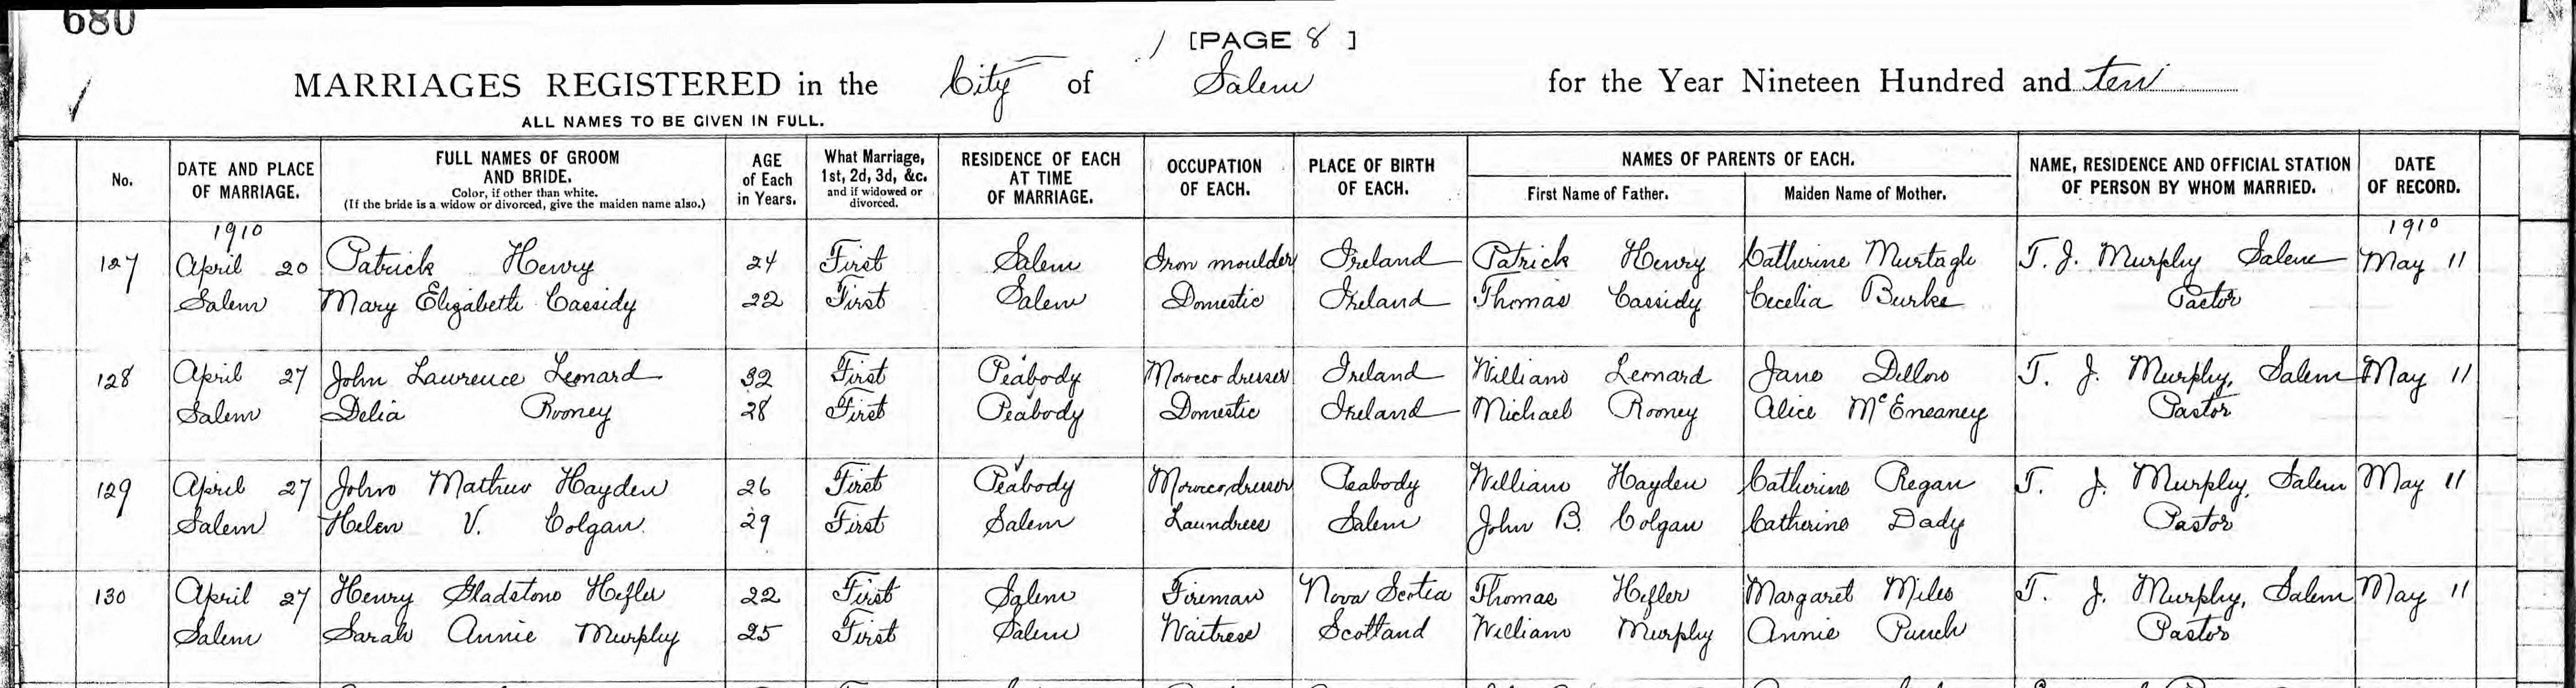 680
[PAGE 8]
MARRIAGES REGISTERED in the City of Salem for the Year Nineteen Hundred and ten
ALL NAMES TO BE GIVEN IN FULL.
No.
DATE AND PLACE
OF MARRIAGE.
FULL NAMES OF GROOM
AND BRIDE.
Color, if other than white.
(If the bride is a widow or divorced, give the maiden name also.)
AGE
of Each
in Years.
What Marriage,
1st, 2d, 3d, &c.
and if widowed or
divorced.
RESIDENCE OF EACH
AT TIME
OF MARRIAGE.
OCCUPATION
OF EACH.
PLACE OF BIRTH
OF EACH.
NAMES OF PARENTS OF EACH.
First Name of Father.
Maiden Name of Mother.
NAME, RESIDENCE AND OFFICIAL STATION
OF PERSON BY WHOM MARRIED.
DATE
OF RECORD.
1910 1910
127 April 20 Patrick Henry 24 First Salem Iron moulder Ireland Patrick Henry Catherine Murtagh T. J. Murphy Salem May 11
Salem Mary Elizabeth Cassidy 22 First Salem Domestic Ireland Thomas Cassidy Cecelia Burke Pastor
128 April 27 John Lawrence Leonard 32 First Peabody Morocco dresser Ireland William Leonard Jane Dillon T. J. Murphy, Salem May 11
Salem Delia Rooney 28 First Peabody Domestic Ireland Michael Rooney Alice McEneaney Pastor
129 April 27 John Mathew Hayden 26 First Peabody Morocco dresser Peabody William Hayden Catherine Regan T. J. Murphy, Salem May 11
Salem Helen V. Colgan 29 First Salem Laundress Salem John B. Colgan Catherine Dady Pastor
130 April 27 Henry Gladstone Hefler 22 First Salem Fireman Nova Scotia Thomas Hefler Margaret Miles T. J. Murphy, Salem May 11
Salem Sarah Annie Murphy 25 First Salem Waitress Scotland William Murphy Annie Punch Pastor